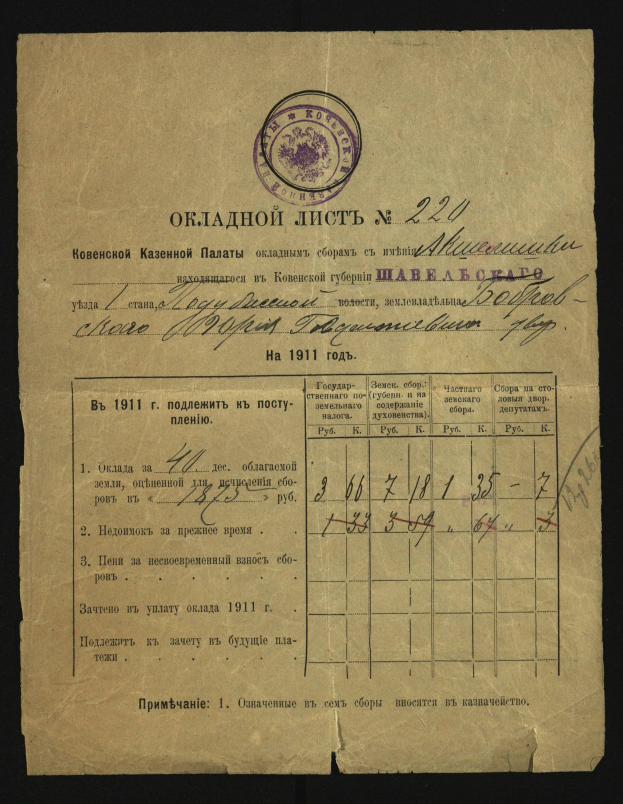 КОВЕНСКОЙ КАЗЕННОЙ ПАЛАТЫ
ОКЛАДНОЙ ЛИСТЪ № 220
Ковенской Казенной Палаты окладнымъ сборамъ съ имѣнія
находящагося въ Ковенской губерніи ШАВЕЛЬСКАГО
уѣзда 1 стана, волости, землевладѣльца Бобров-
скаго двор.
На 1911 годъ.
Въ 1911 г. подлежитъ къ посту-
пленію.
Государ-
ственнаго по-
земельнаго
налога.
Земск. сбор.:
(губерн. и на
содержаніе
духовенства).
Частнаго
земскаго
сбора.
Сбора на сто-
ловыя двор.
депутатамъ.
Руб. К. Руб. К. Руб. К. Руб. К.
1. Оклада за 40 дес. облагаемой
земли, оцѣненной для исчисленія сбо-
ровъ въ « 1875 » руб.
3 66 7 18 1 35 – 7
2. Недоимокъ за прежнее время . .
1 33 3 59 „ 67 „ 3
3. Пени за несвоевременный взносъ сбо-
ровъ . . . . . .
Зачтено въ уплату оклада 1911 г. .
Подлежитъ къ зачету въ будущіе пла-
тежи . . . . . .
Примѣчаніе: 1. Означенные въ семъ сборы вносятся въ казначейство.